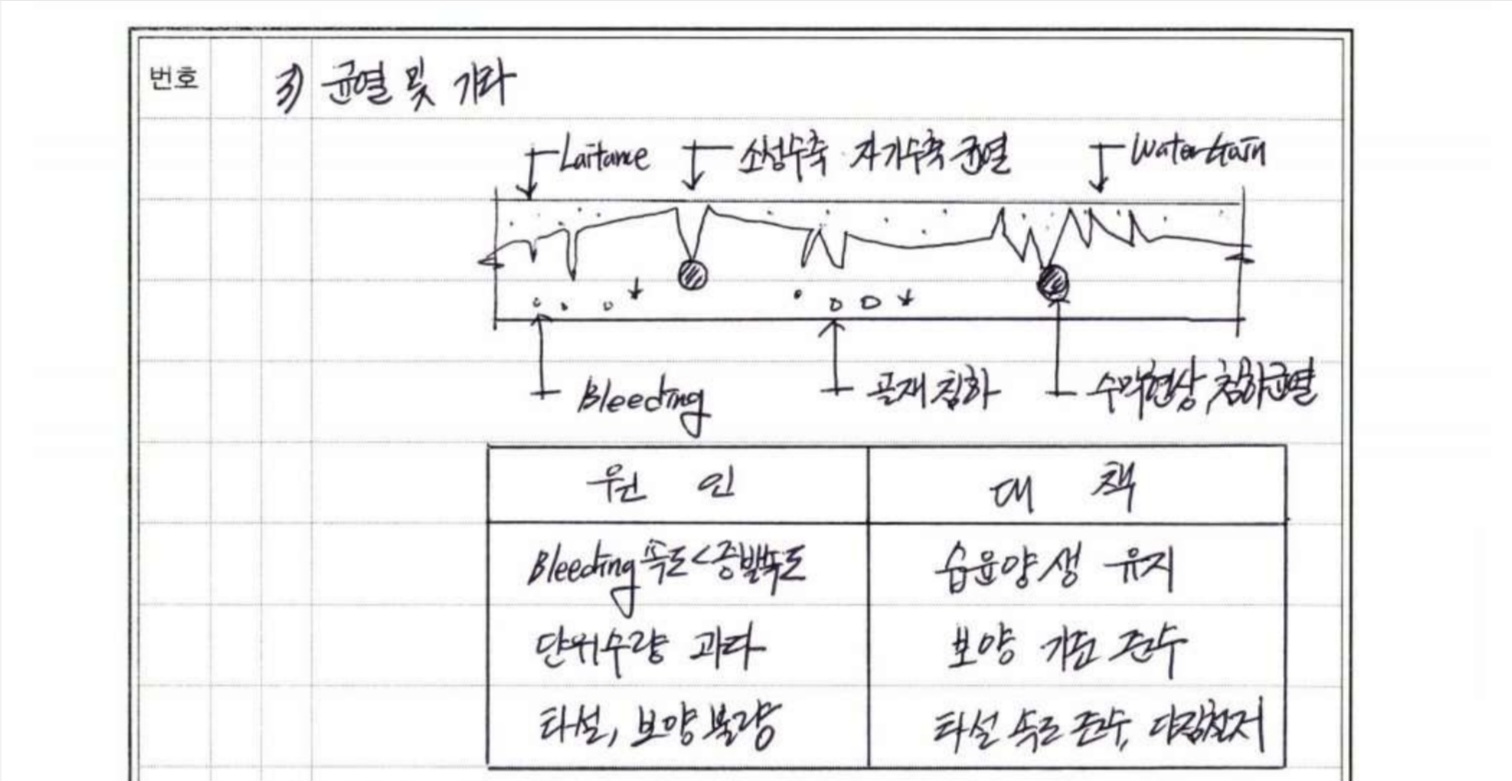 번호
3) 균열 및 기타
Laitance
소성수축 자가수축 균열
Water Gain
Bleeding
골재 침하
수막현상, 침하균열
원 인
대 책
Bleeding 속도 < 증발속도
습윤양생 유지
단위수량 과다
보양 기준 준수
타설, 보양 불량
타설 속도 준수, 다짐철저